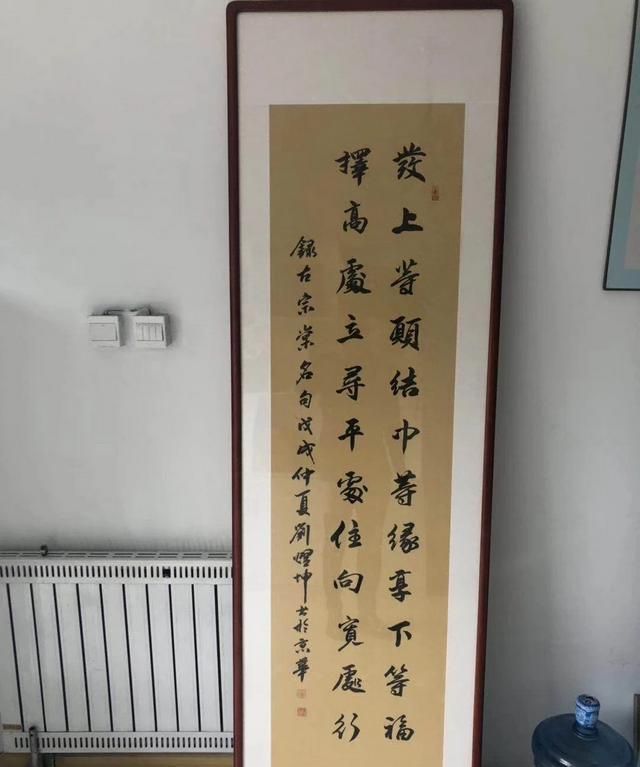 發上等願結中等緣享下等福
擇高處立尋平處住向寬處行
錄左宗棠名句戊戌仲夏劉耀坤书於京華